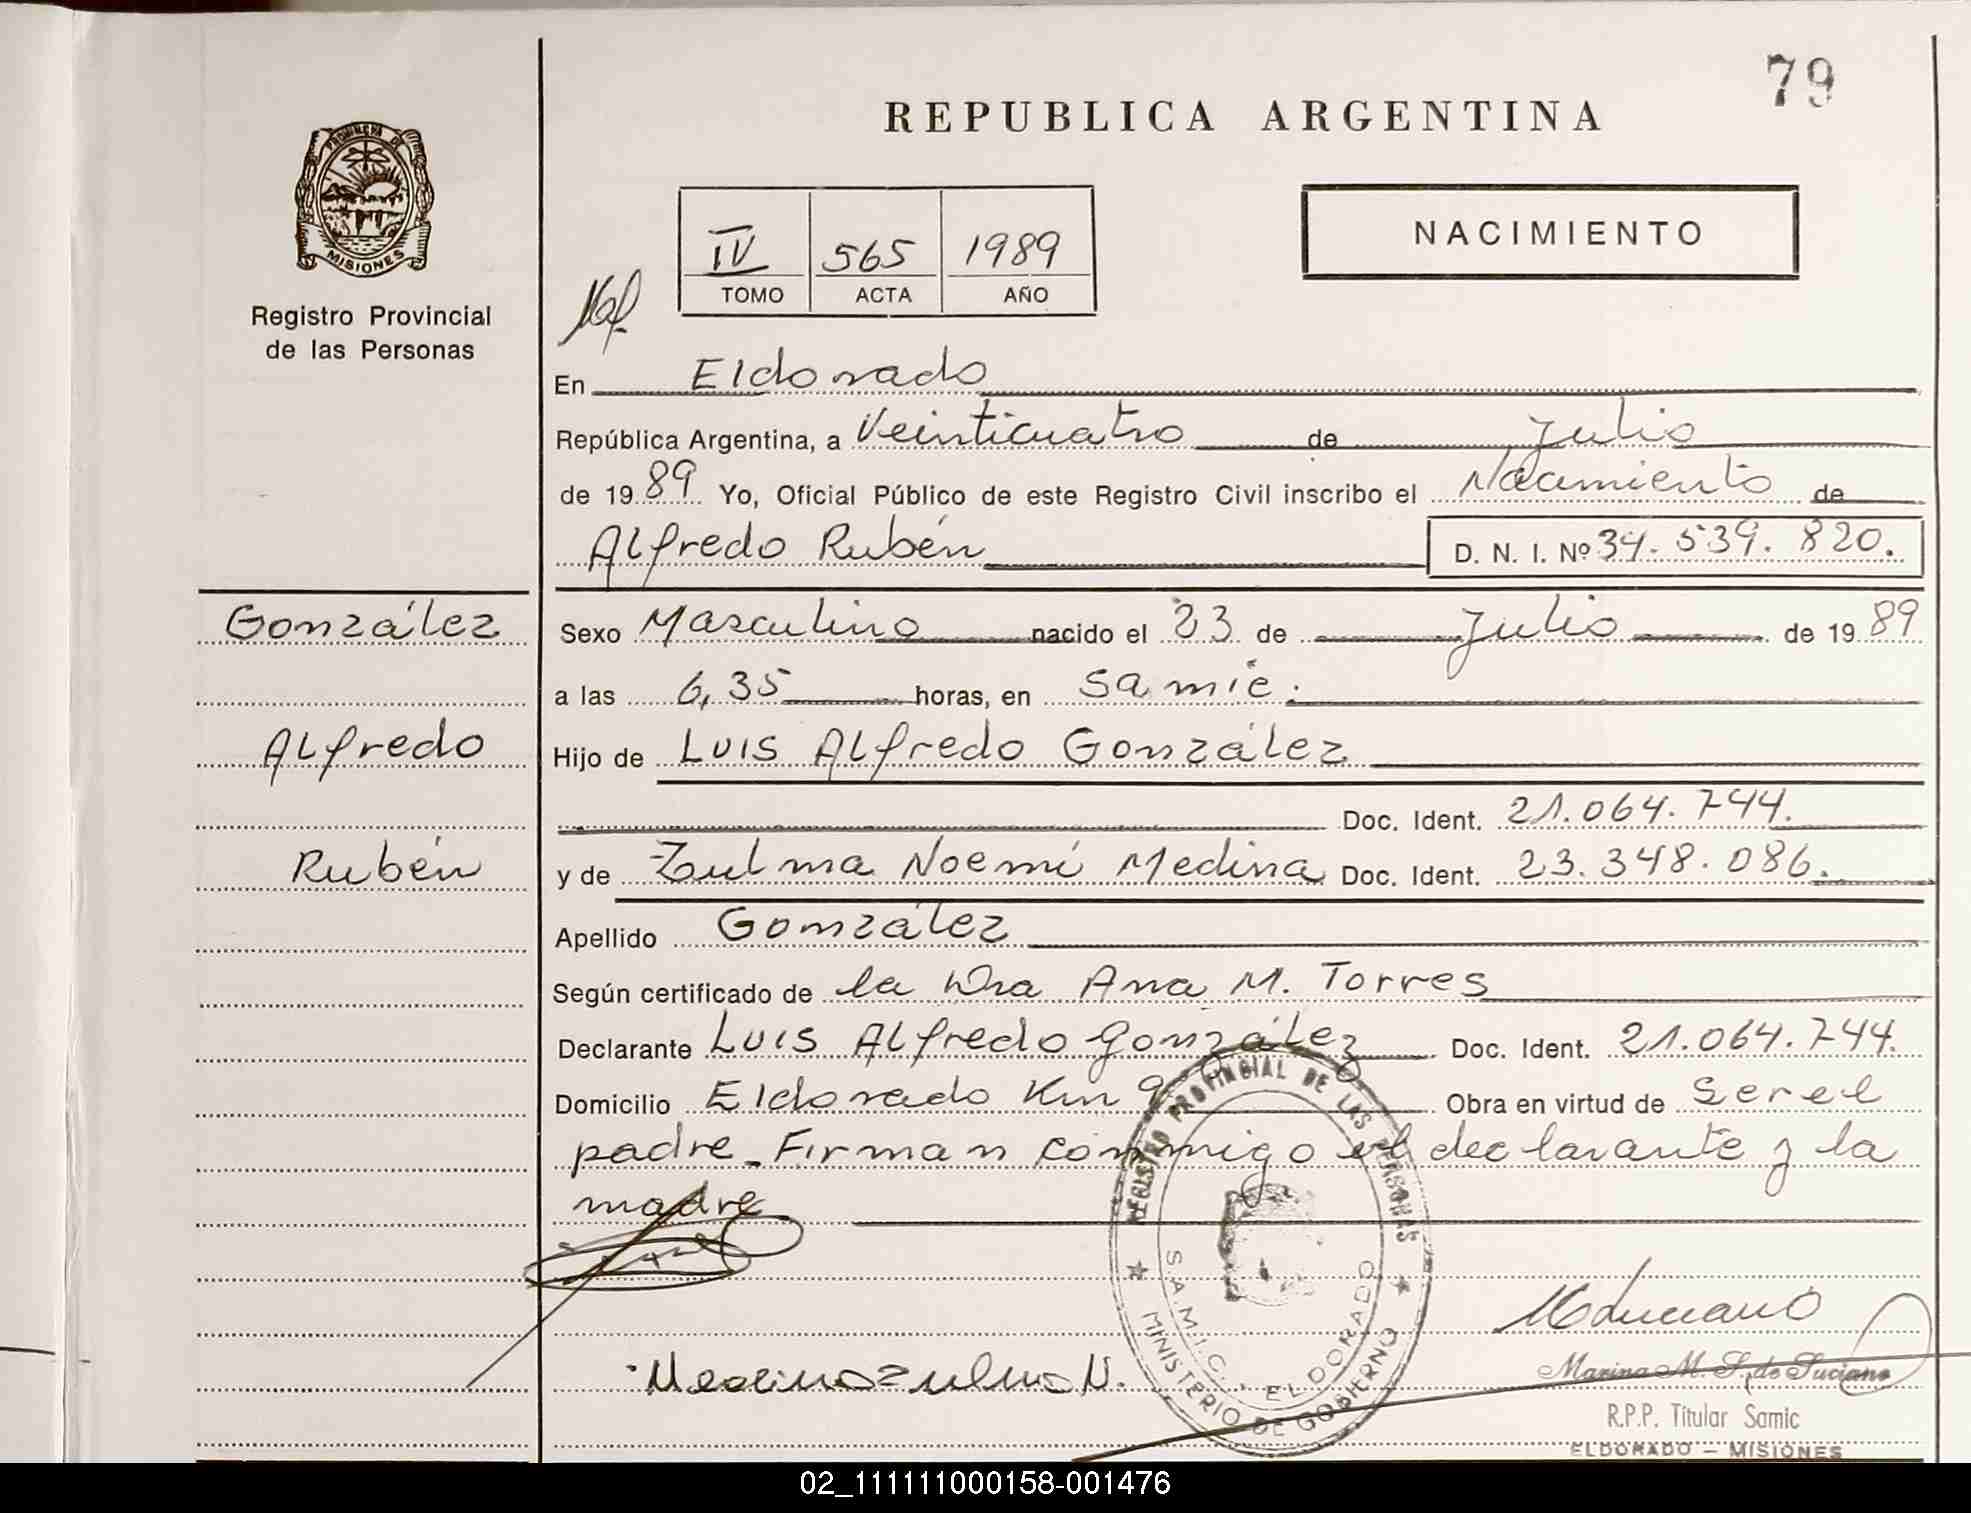 79
REPUBLICA ARGENTINA
PROVINCIA DE
MISIONES
Registro Provincial
de las Personas
IV 565 1989
TOMO ACTA AÑO
NACIMIENTO
En Eldorado
República Argentina, a Veinticuatro de Julio
de 1989 Yo, Oficial Público de este Registro Civil inscribo el Nacimiento de
Alfredo Rubén D. N. I. Nº 34.539.820.
González
Alfredo
Rubén
Sexo Masculino nacido el 23 de Julio de 1989
a las 6,35 horas, en Samic.
Hijo de Luis Alfredo González
Doc. Ident. 21.064.744.
y de Zulma Noemí Medina Doc. Ident. 23.348.086.
Apellido González
Según certificado de la Dra Ana M. Torres
Declarante Luis Alfredo González Doc. Ident. 21.064.744.
Domicilio Eldorado Km 9 Obra en virtud de Ser el
padre. Firman conmigo el declarante y la
madre
REGISTRO PROVINCIAL DE LAS PERSONAS
S.A.M.I.C. ELDORADO
MINISTERIO DE GOBIERNO
Medina Zulma N.
Marina M. S. de Suciano
R.P.P. Titular Samic
ELDORADO - MISIONES
02_111111000158-001476